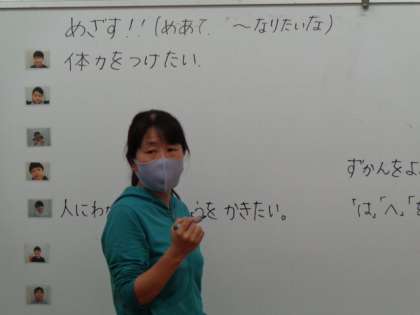 めざす!!(めあて. ~なりたいな)
体力をつけたい.
ずかんをよ
人にわ うを かきたい。
「は」「へ」「